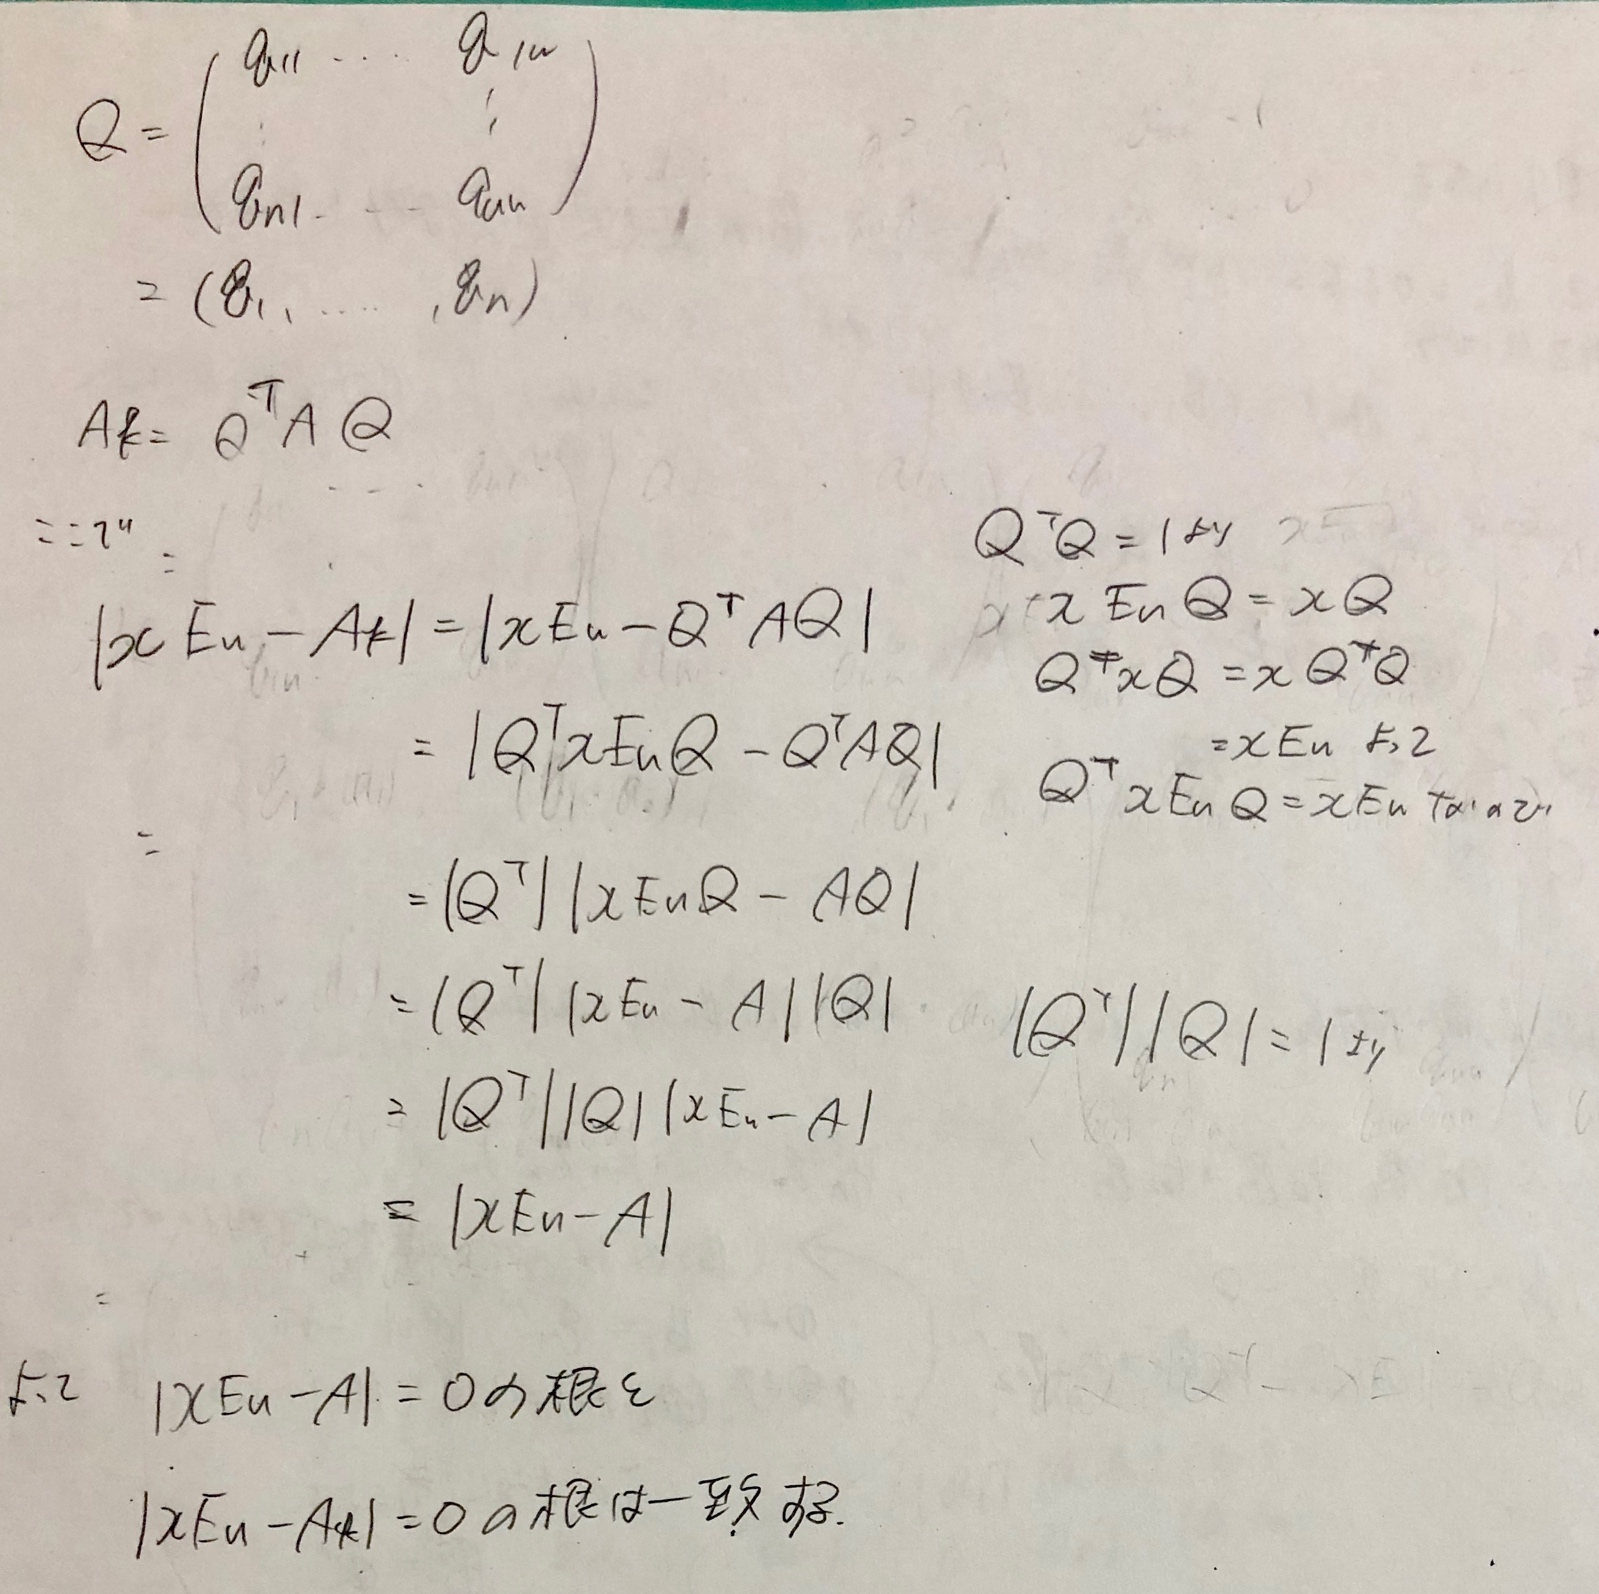 Q = ( q11 .... q1n
⋮ ⋮
qn1 .... qnn )
= (q1, ...... , qn)
Ak = Q^T A Q
ここで
|xEn - Ak| = |xEn - Q^T AQ|
= |Q^T xEnQ - Q^T AQ|
= |Q^T| |xEnQ - AQ|
= |Q^T| |xEn - A| |Q|
= |Q^T| |Q| |xEn - A|
= |xEn - A|
Q^T Q = 1 より
xEnQ = xQ
Q^T xQ = xQ^T Q
= xEn よって
Q^T xEnQ = xEn なので
|Q^T| |Q| = 1 より
よって |xEn - A| = 0 の根と
|xEn - Ak| = 0 の根は一致する.